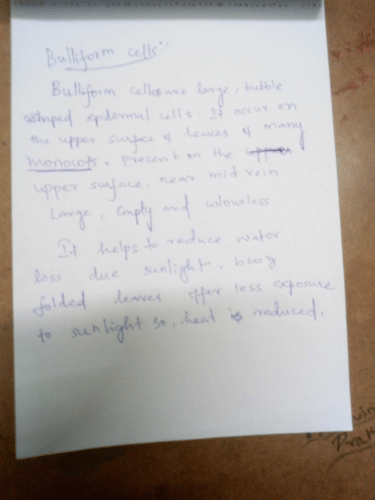 Bulliform cells:-
Bulliform cells are large, bubble
shaped epidermal cells. It occur on
the upper surface of leaves of many
monocots. Present on the upper
upper surface, near mid vein
Large, Empty and colourless
It helps to reduce water
loss due sunlight. bcoz
folded leaves offer less exposure
to sunlight so, heat is reduced.